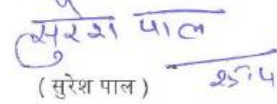 सुरेश पाल
(सुरेश पाल)